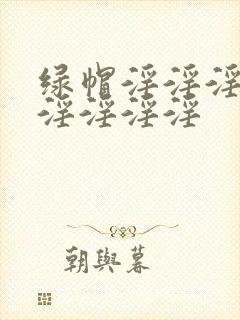 绿帽淫淫淫
淫淫淫淫
朝與暮